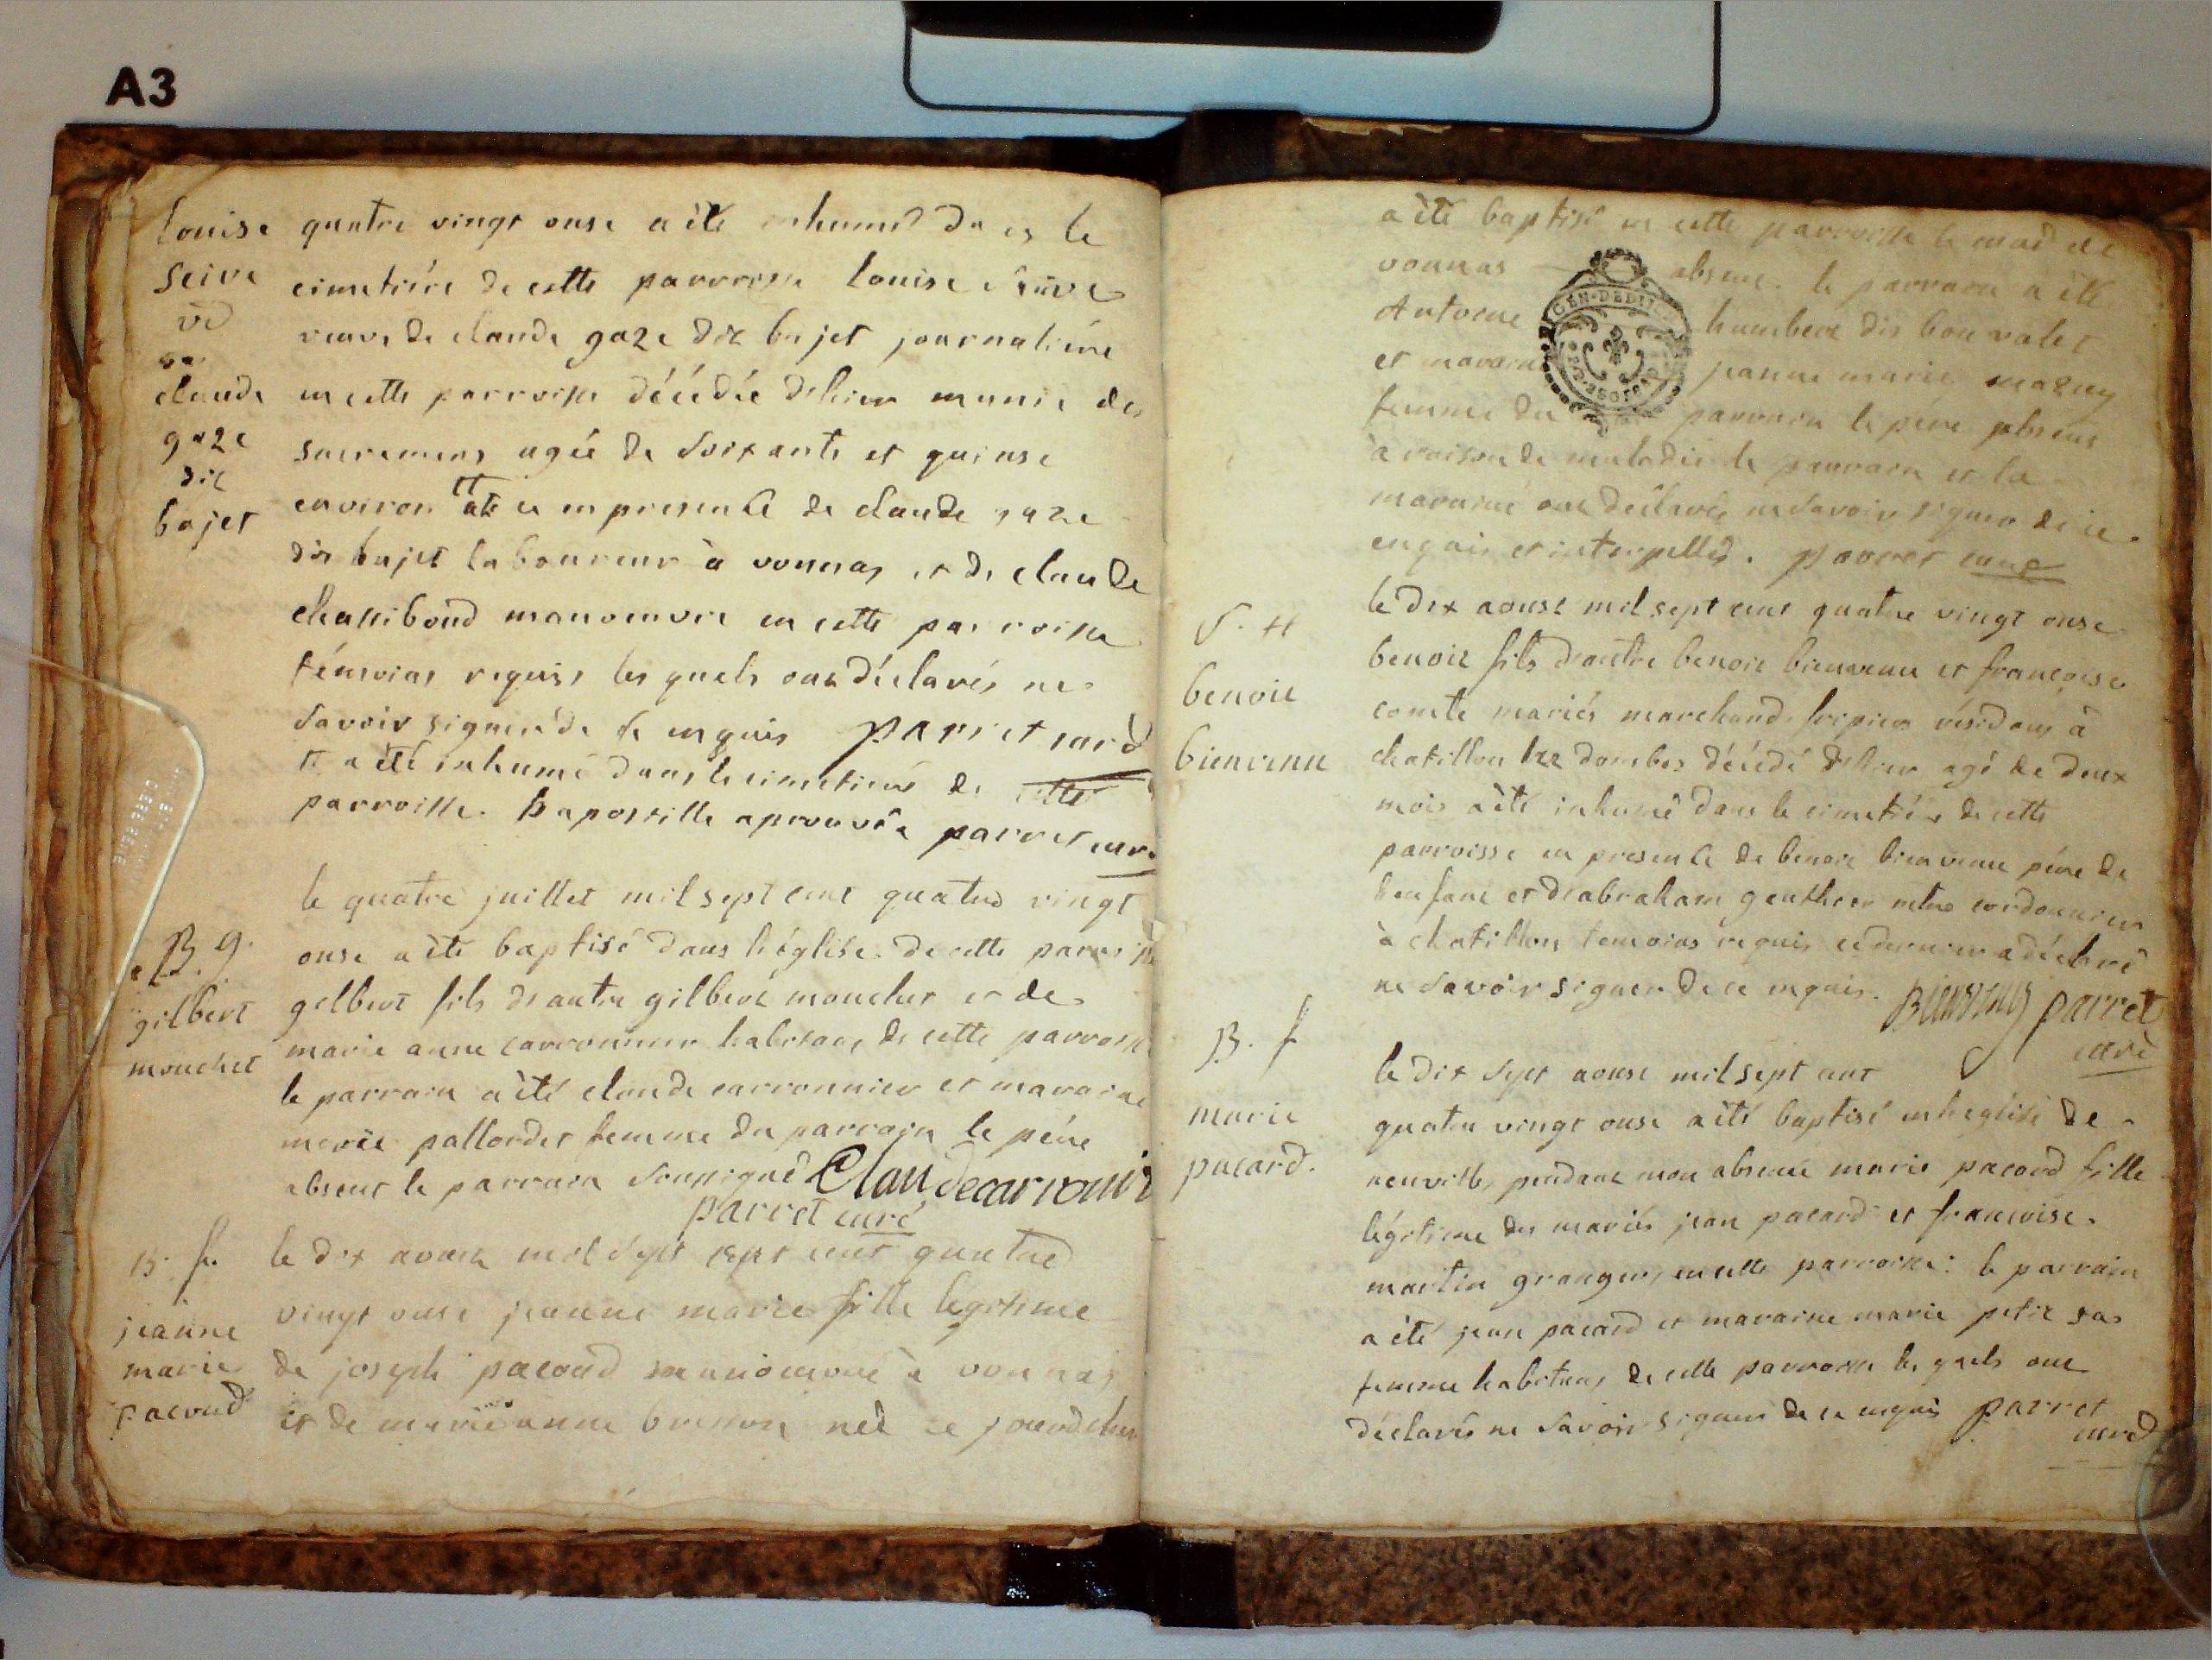 A3
Louise
Seive
vd
claude
gaze
dit
bajet
quatre vingt onse a été inhumé dans le
cimetiére de cette parroisse Louise Seive
veuve de claude gaze dit bajet journaliére
en cette parroisse décédée d'hier munie des
sacremens agée de soixante et quinse
environ tt en presence de claude gaze
dit bajet laboureur à vonnas et de claude
chassiboud manoeuvre en cette parroisse
témoins requis les quels ont déclarés ne
savoir signer de ce enquis parret curé
tt a été inhumé dans le cimetiére de cette
parroisse. L'apostille aprouvée parret curé
B. g.
gilbert
mouchet
le quatre juillet mil sept cent quatre vingt
onse a été baptisé dans l'église de cette parroisse
gilbert fils d'autre gilbert mouchet et de
marie anne carronnier habitans de cette parroisse
le parrain a été claude carronnier et maraine
marie pallordet femme du parrain le pére
absent le parrain soussigné Claude carronnier
parret curé
B. f.
jeanne
marie
pacoud
le dix aoust mil sept sept cent quatre
vingt onse jeanne marie fille legitime
de joseph pacoud manoeuvre à vonnas
et de marie anne née ce jourdhui
a été baptisé en cette parroisse le curé de
vonnas absent. le parrain a été
Antoine humbert dit bonvalet
et maraine jeanne marie mazuy
femme du parrain le pére absent
à raison de maladie le parrain et la
maraine ont déclarés ne savoir signer de ce
enquis et interpellés. parret curé
CEN-DEDI
S. H
benoit
bienvenu
le dix aoust mil sept cent quatre vingt onse
benoit fils d'autre benoit bienvenu et françoise
comte mariés marchands fripier résidans à
chatillon les dombes décédé d'hier agé de deux
mois a été inhumé dans le cimetiére de cette
parroisse en presence de benoit bienvenu pére de
l'enfant et d'abraham gauthier mtre cordonnier
à chatillon temoins requis ce dernier a déclaré
ne savoir signer de ce enquis. Bienvenu parret
curé
B. f
marie
pacard.
le dix sept aoust mil sept cent
quatre vingt onse a été baptisé en l'eglise de
neuville, pendant mon absence marie pacard fille
légitime des mariés jean pacard et francoise
martin grangers en cette parroisse: le parrain
a été jean pacard et maraine marie petit sa
femme habitans de cette parroisse les quels ont
déclarés ne savoir signer de ce enquis parret
curé